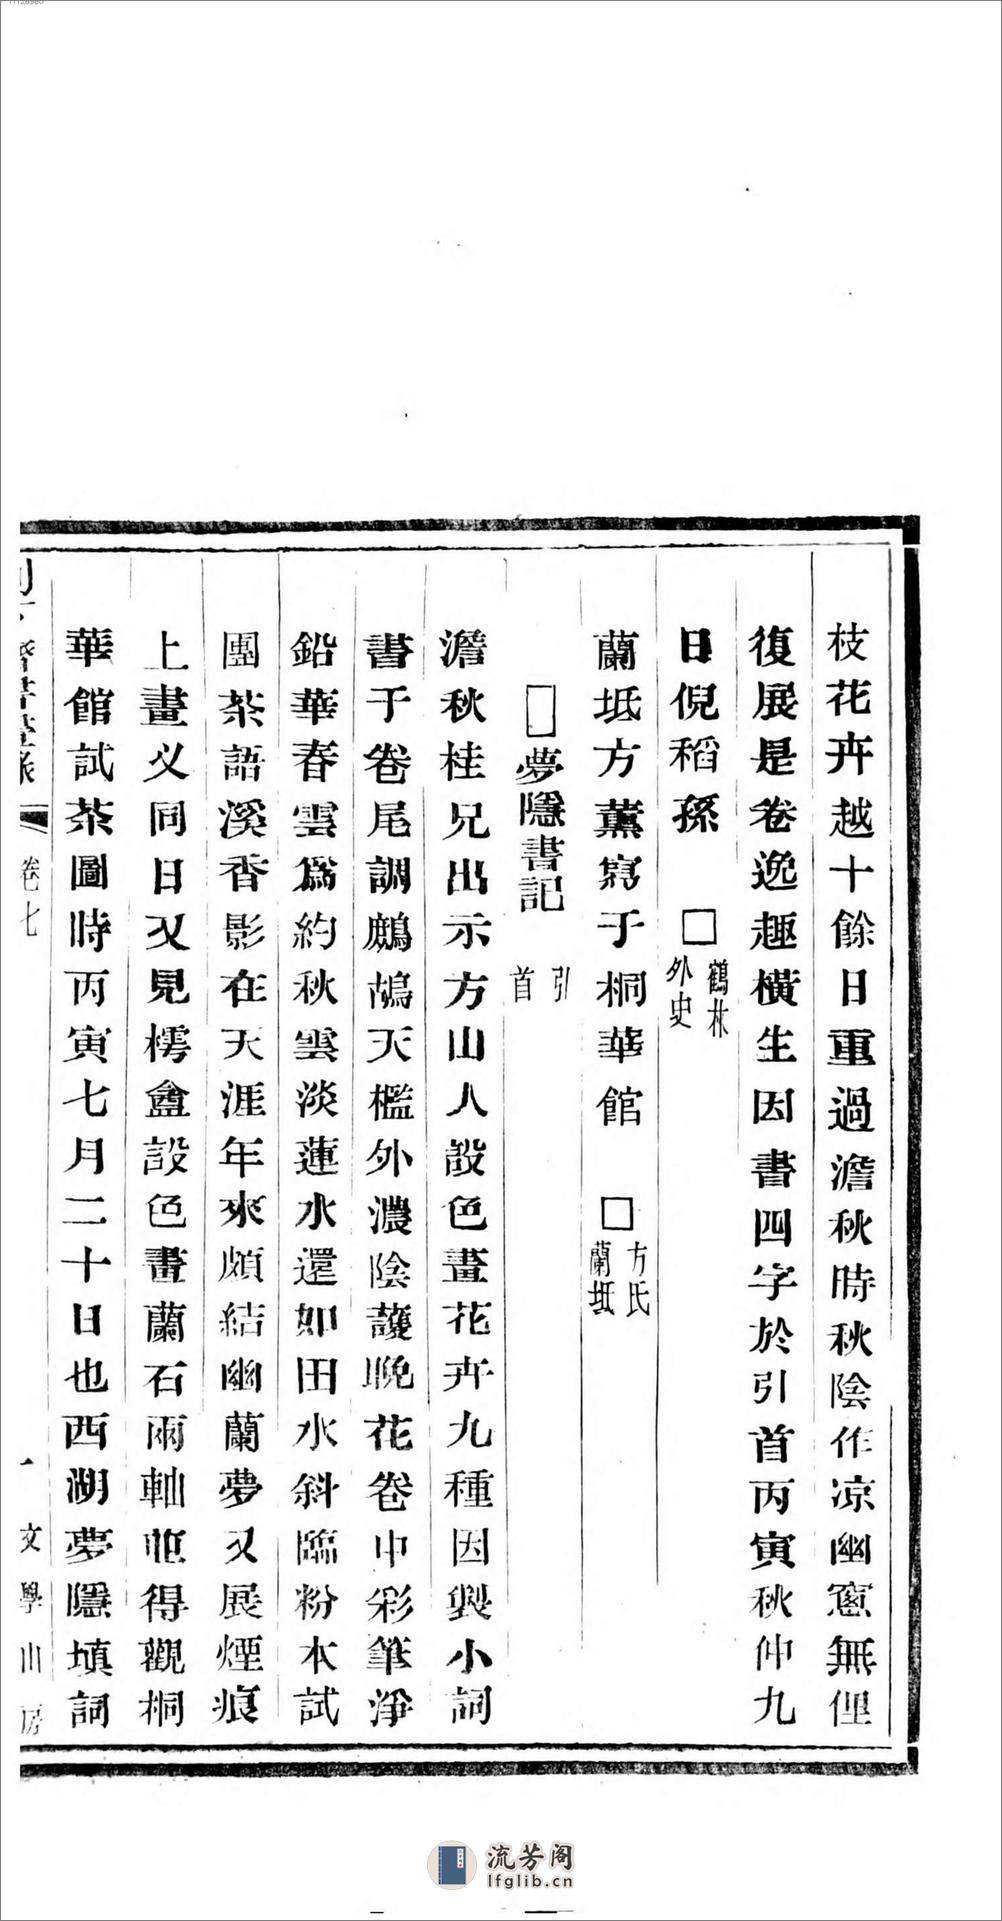 枝花卉越十餘日重過澹秋時秋陰作凉幽窻無俚
復展是卷逸趣橫生因書四字於引首丙寅秋仲九
日倪稻孫 □ 鶴林外史
蘭坻方薰寫于桐華館 □ 方氏蘭坻
□夢隱書記 引首
澹秋桂兄出示方山人設色畫花卉九種因製小詞
書于卷尾調鷓鴣天檻外濃陰護晚花卷中彩筆淨
鉛華春雲爲約秋雲淡蓮水還如田水斜臨粉本試
團茶語溪香影在天涯年來頗結幽蘭夢又展煙痕
上畫乂同日又見樗盦設色畫蘭石兩軸並得觀桐
華館試茶圖時丙寅七月二十日也西湖夢隱填詞
齋書畫錄 卷七 一 文學山房
流芳阁
lfglib.cn